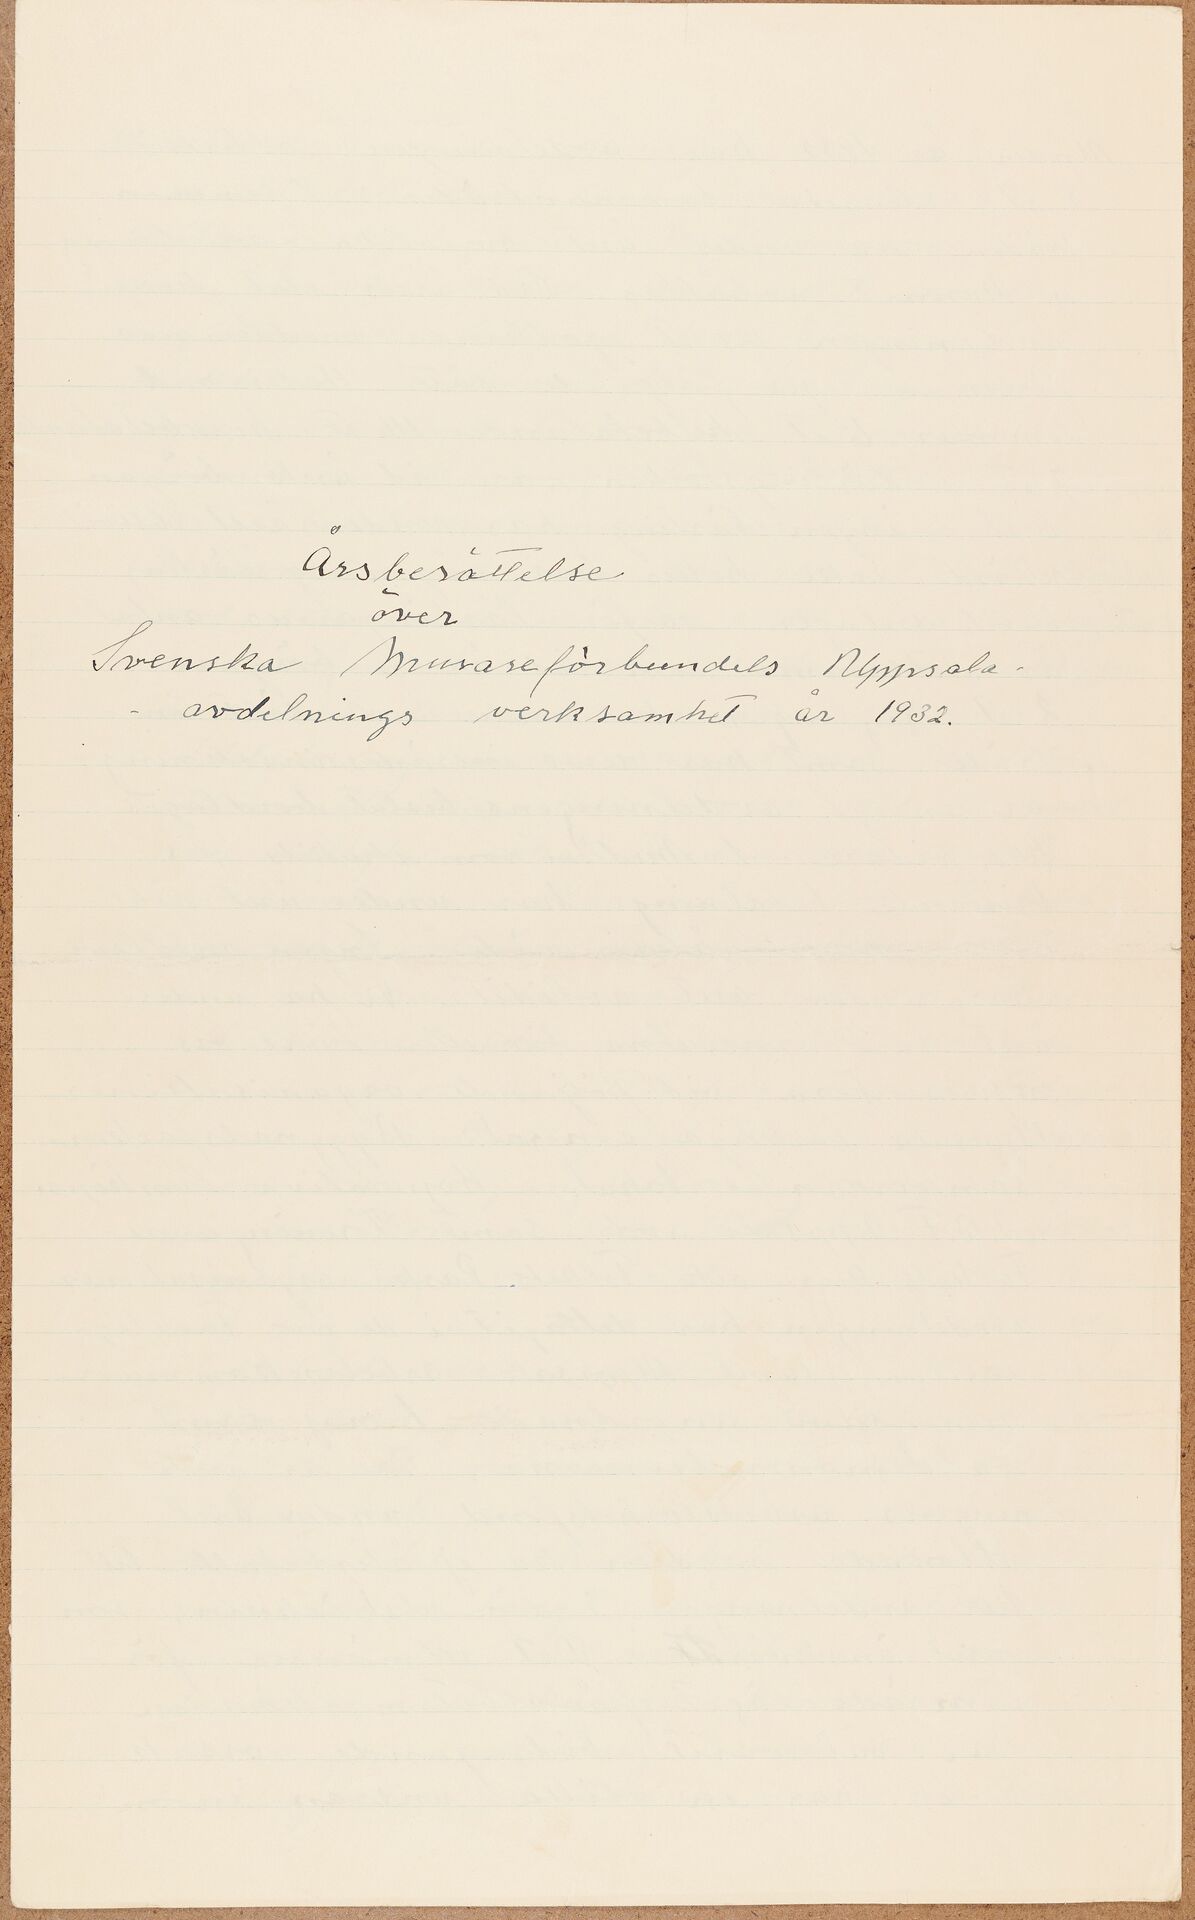 Årsberättelse
över
Svenska Murareförbundels Uppsala-
- avdelnings verksamhet år 1932.